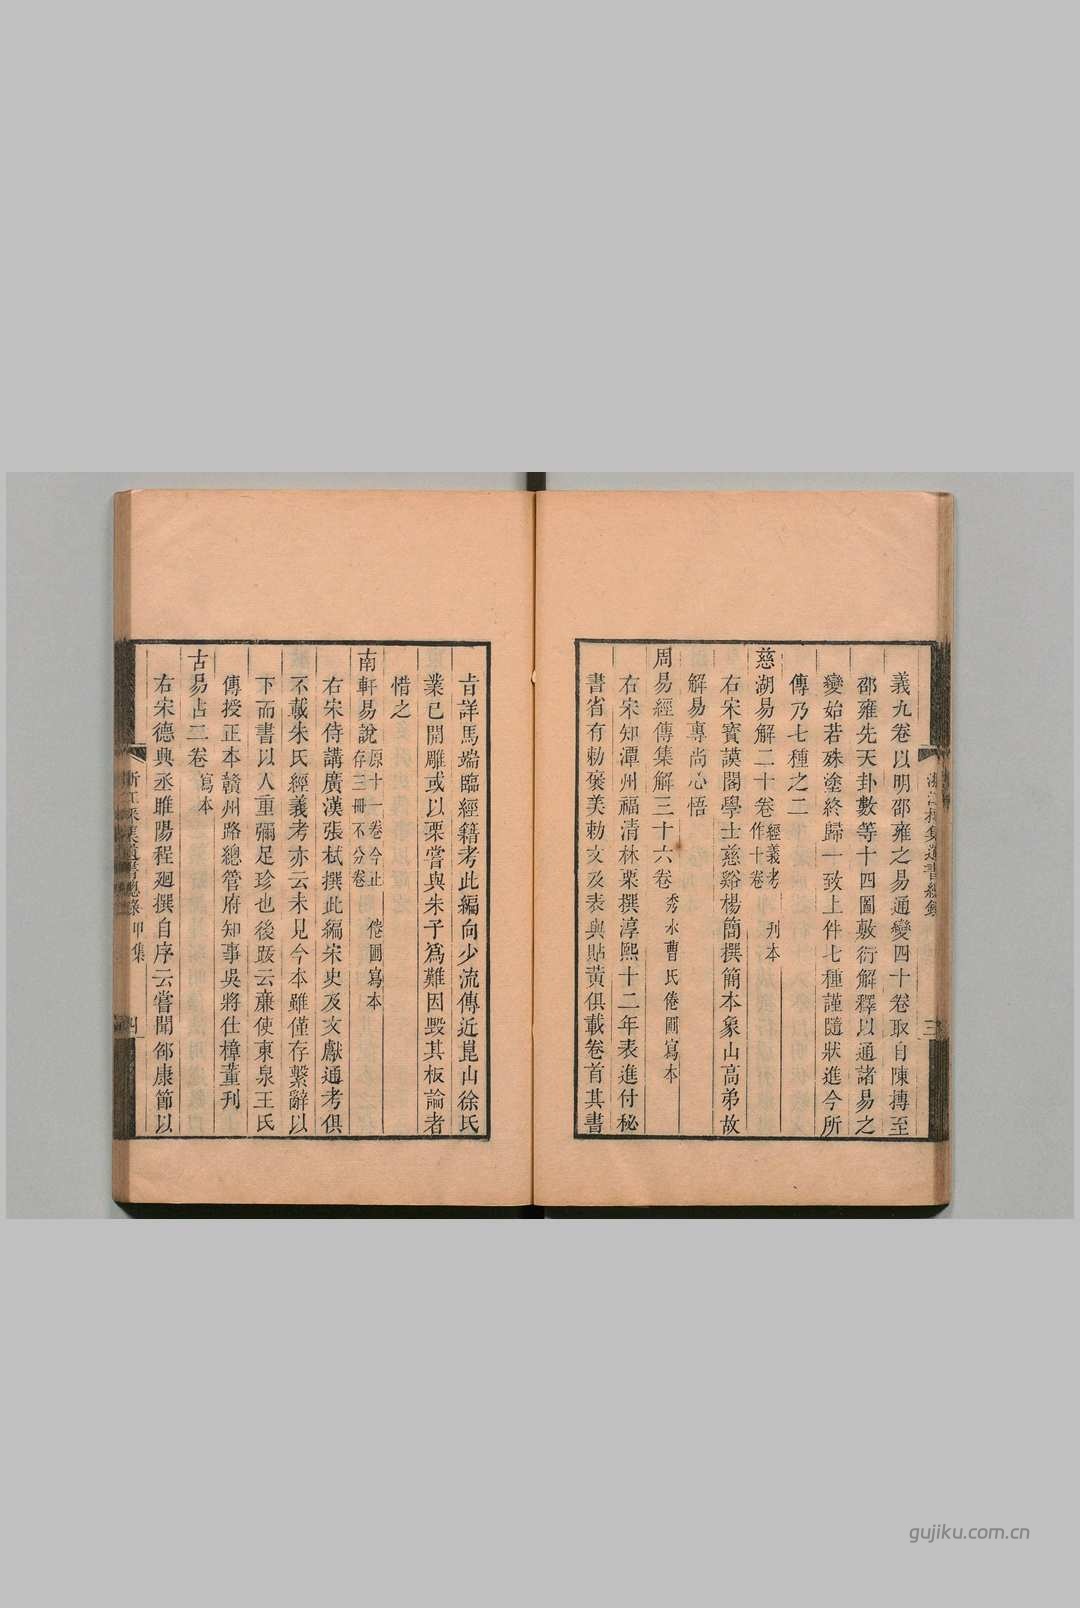 義九卷以明邵雍之易通變四十卷取自陳摶至
邵雍先天卦數等十四圖敷衍解釋以通諸易之
變始若殊塗終歸一致上件七種謹隨狀進今所
傳乃七種之二
慈湖易解二十卷 經義考作十卷 刊本
右宋寶謨閣學士慈谿楊簡撰簡本象山高弟故
解易專尚心悟
周易經傳集解三十六卷 秀水曹氏倦圃寫本
右宋知潭州福清林栗撰淳熙十二年表進付秘
書省有勅褒美勅文及表與貼黃俱載卷首其書
三
㫖詳馬端臨經籍考此編向少流傳近崑山徐氏
業已開雕或以栗嘗與朱子為難因毀其板論者
惜之
南軒易說 原十一卷今止存三冊不分卷 倦圃寫本
右宋侍講廣漢張栻撰此編宋史及文獻通考俱
不載朱氏經義考亦云未見今本雖僅存繫辭以
下而書以人重彌足珍也後跋云亷使東泉王氏
傳授正本贛州路總管府知事吳將仕樟董刊
古易占二卷 寫本
右宋德興丞睢陽程廻撰自序云嘗聞邵康節以
浙江采集遺書總錄 甲集 四
gujiku.com.cn